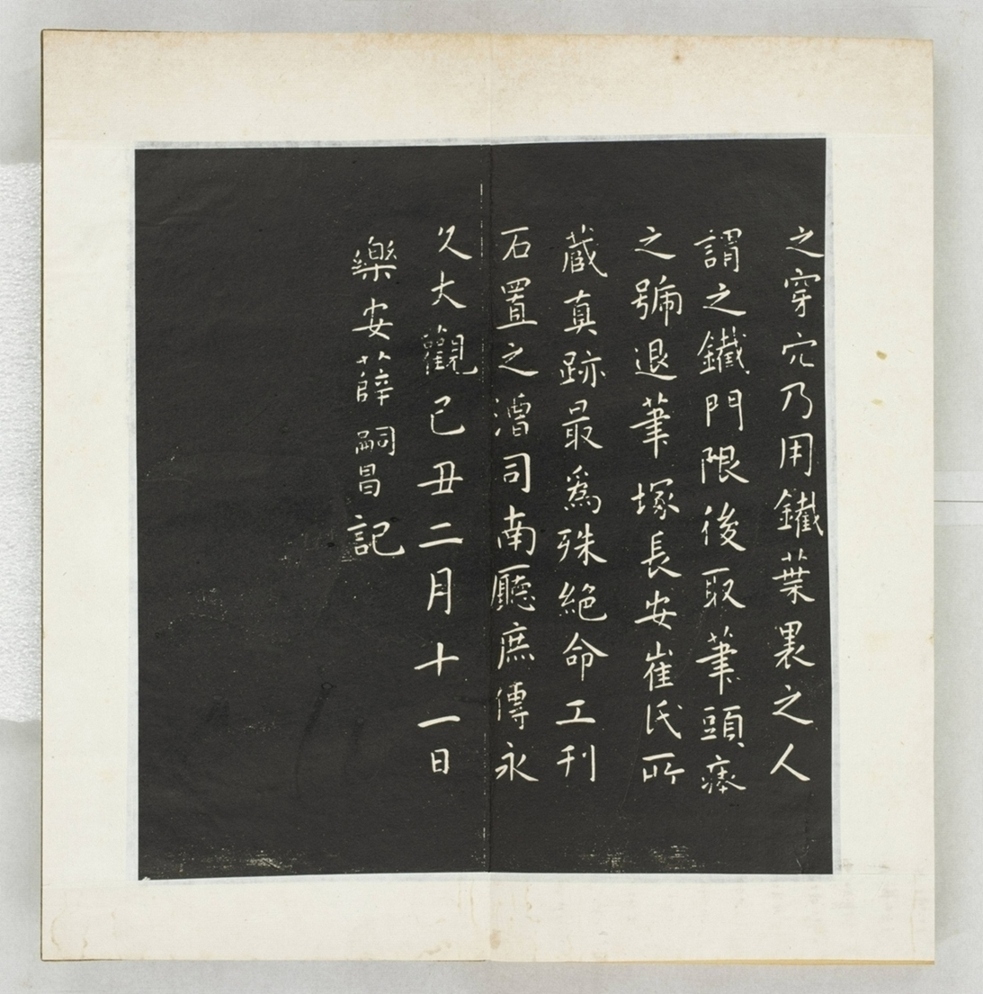 之穿穴乃用鐵葉裹之人
謂之鐵門限後取筆頭瘞
之號退筆塚長安崔氏所
蔵真跡最為殊絕命工刊
石置之漕司南廳庶傳永
久大觀己丑二月十一日
樂安薛嗣昌記